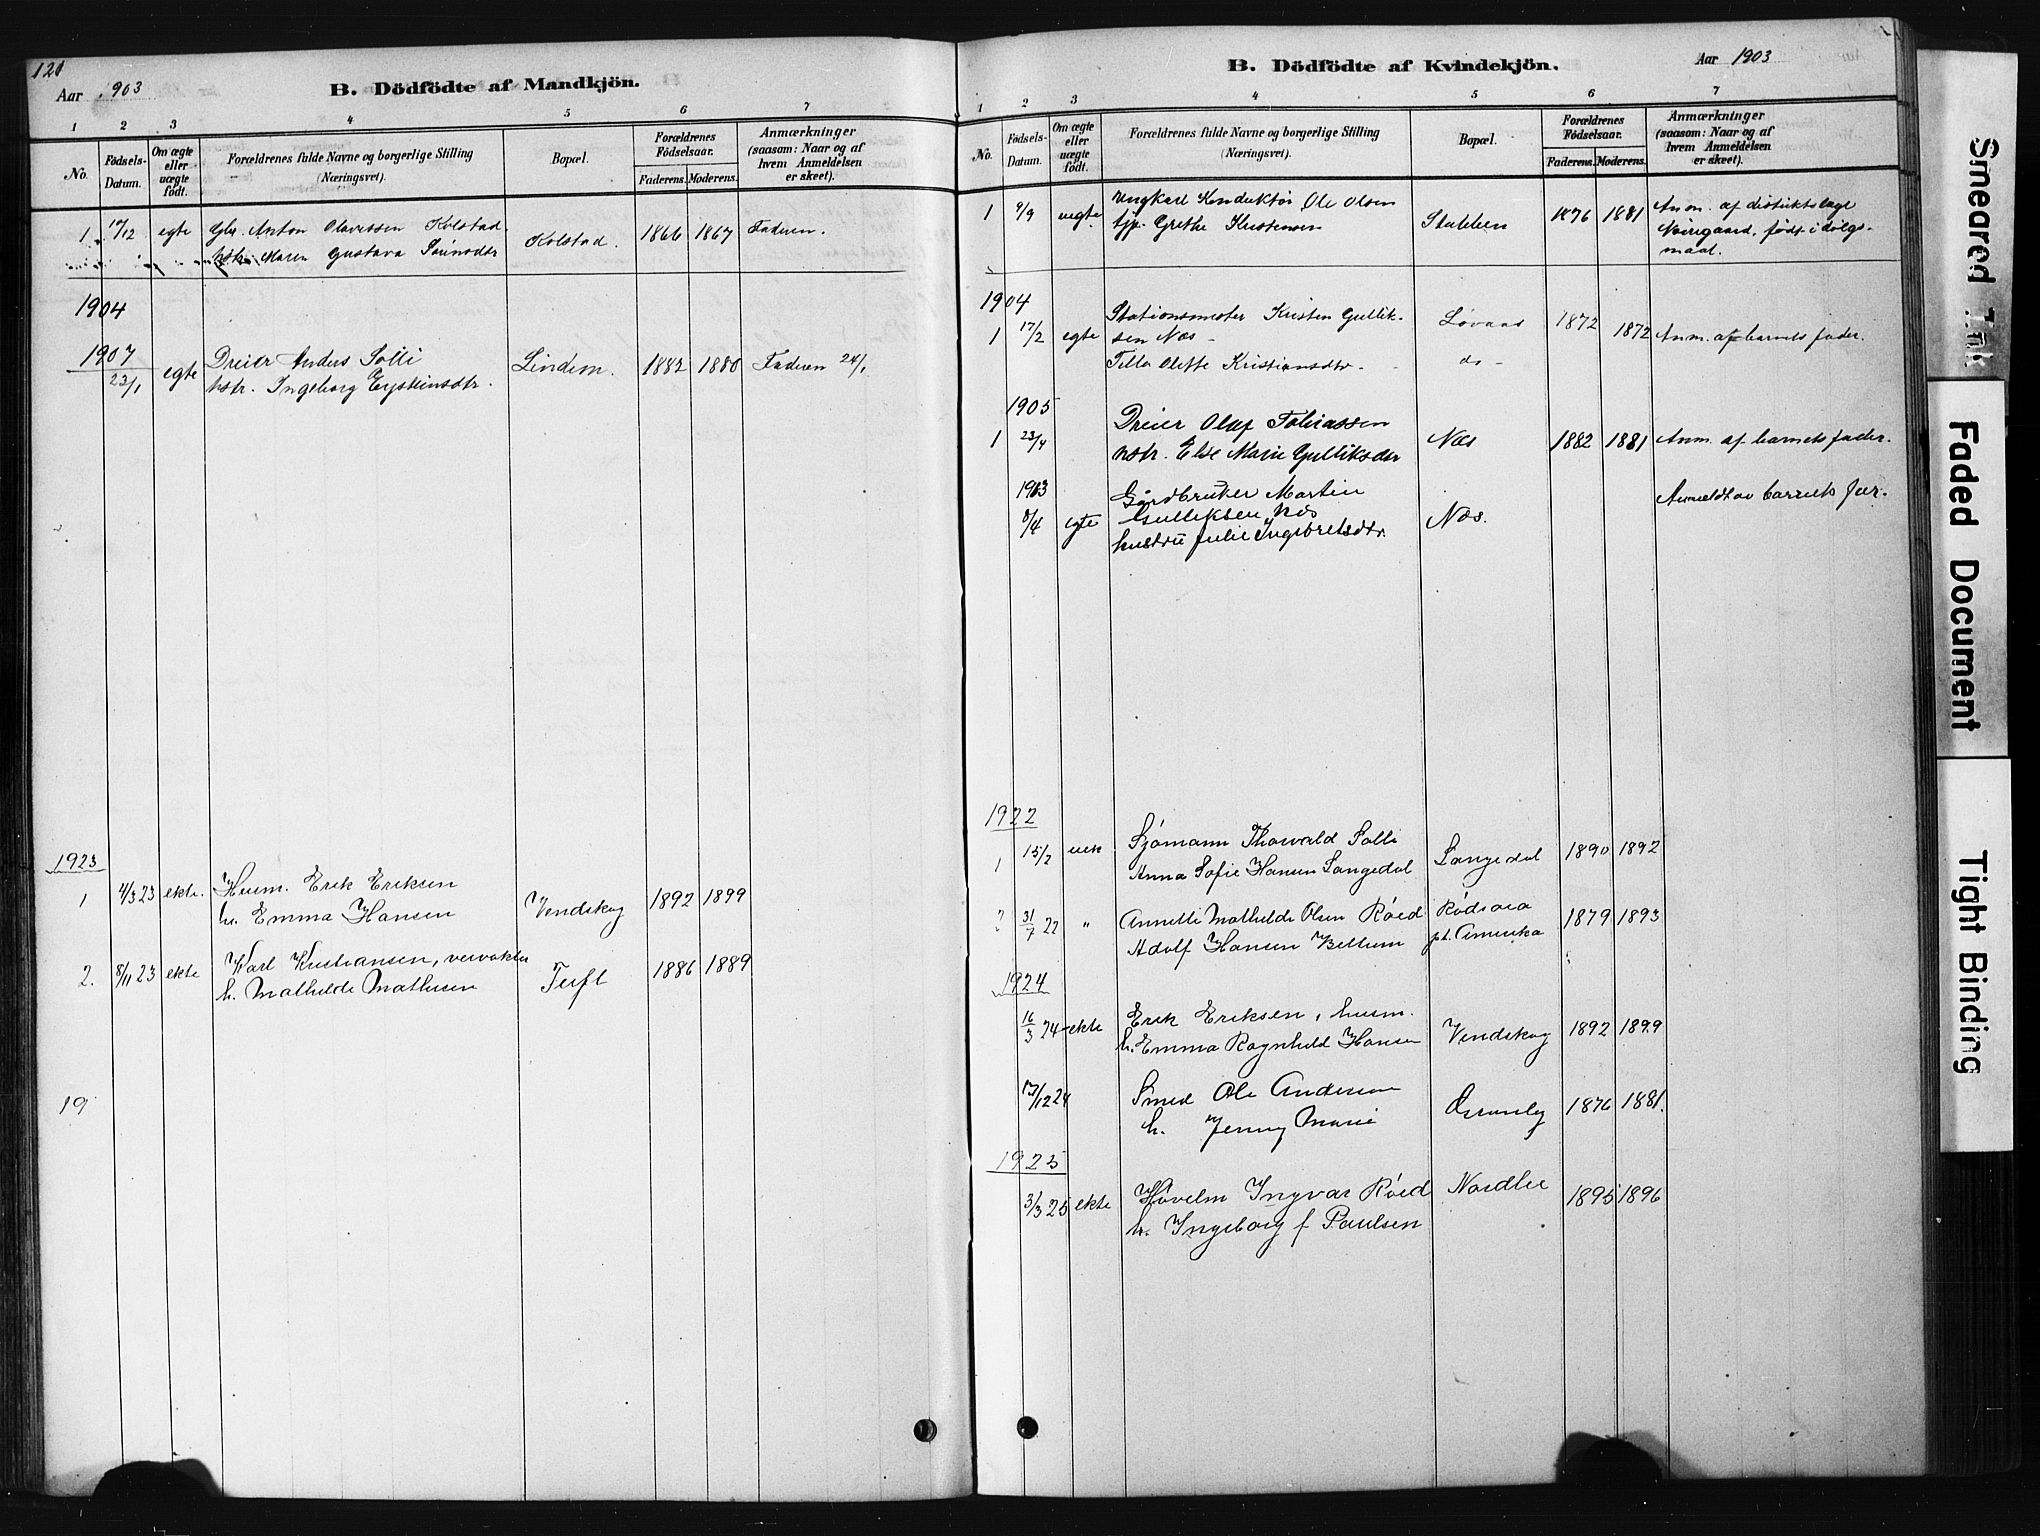 121
Aar 1903
B. Dödfödte af Mandkjön.
1 2 3 4 5 6 7
No.
Födsels-Datum.
Om ægte eller uægte födt.
Forældrenes fulde Navne og borgerlige Stilling
(Næringsvei).
Bopæl.
Forældrenes Födselsaar.
Faderens. Moderens.
Anmærkninger
(saasom: Naar og af
hvem Anmeldelsen
er skeet).
1. 17/12 egte Gbr. Anton Olavessen Kolstad Kolstad. 1866 1867 Faderen.
hstr. Maren Gustava
1904
1907
23/1 egte Dreier Anders Solli Lindem. 1882 1880 Faderen 24/1
hstr. Ingeborg Eysteinsdtr.
1923
1 4/3 23 ekte. Husm. Erik Eriksen Vendskog 1892 1899
h. Emma Hansen
2. 8/11 23 ekte Karl Kristiansen, Tuft 1886 1889
h. Mathilde Mathisen
19
B. Dödfödte af Kvindekjön.
Aar 1903
1 2 3 4 5 6 7
No.
Födsels-Datum.
Om ægte eller uægte födt.
Forældrenes fulde Navne og borgerlige Stilling
(Næringsvei).
Bopæl.
Forældrenes Födselsaar.
Faderens. Moderens.
Anmærkninger
(saasom: Naar og af
hvem Anmeldelsen
er skeet).
1 9/9 uegte Ungkarl Konduktör Ole Olsen Stubben 1876 1881 Anm. af distriktslæge
tjp. Grethe Kristensen Neiregaard, födt i dölgs-
maal.
1904
1 17/2 egte Stationsmester Kristen Gullik- Lövaas 1872 1872 Anm. af barnets fader.
sen Næs -
Tilla Olette Kristiansdtr. - do -
1905
1 23/4 Dreier Olaf Tobiassen Næs 1882 1881 Anm. af barnets fader.
hstr. Else Marie Gulliksdtr
1913 Gårdbruker Martin Anmeldt av barnets far.
8/4 egte Gulliksen Næs Næs.
hustru Julie Ingebretsdtr.
1922
1 15/2 uek Sjömann Thorvald Solli Langedal 1890 1892
Anna Sofie Hansen Langedal
2 31/7 22 " Annette Mathilde Olsen Röed 1879 1893
Adolf Hansen pt. Amerika
1924
16/3 24 ekte Erik Eriksen, husm. Vendskog 1892 1899
h. Emma Ragnhild Hansen
17/12 24 Smed Ole Anderson 1876 1881.
h. Jenny Marie
1925
3/3 25 ekte Hövelm Ingvar Röed Nordlie 1895 1896
h. Ingeborg f Paulsen
Smeared Ink
Faded Document
Tight Binding